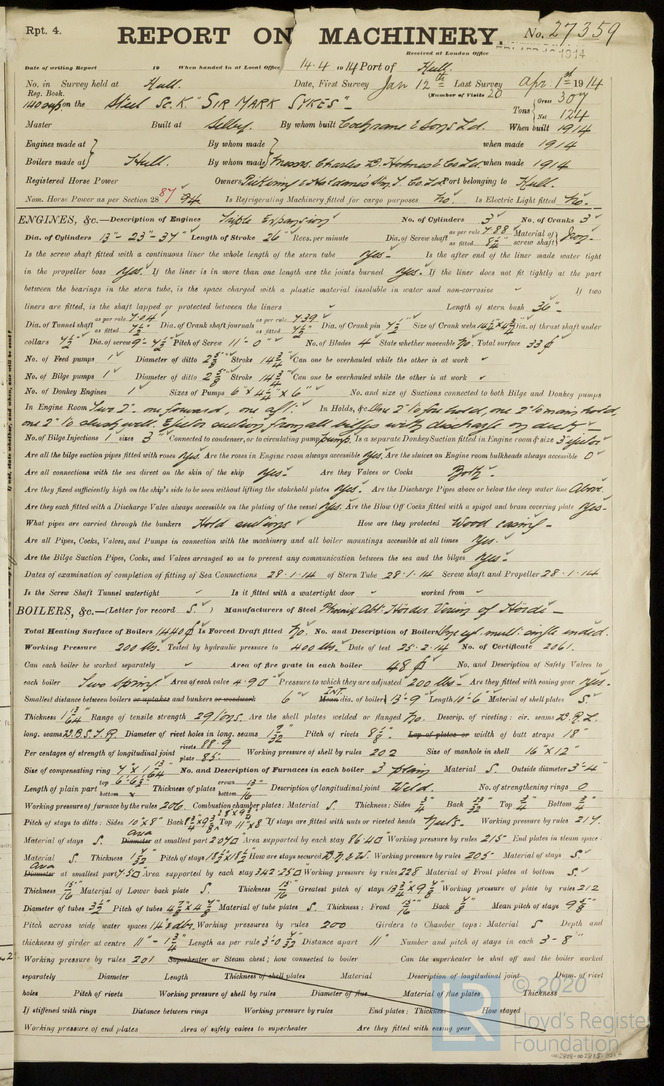 Rpt. 4.
REPORT ON MACHINERY.
No. 27359
Received at London Office
Date of writing Report 19 When handed in at Local Office 14.4 1914 Port of Hull.
No. in Survey held at Hull. Date, First Survey Jan 12th Last Survey Apr: 1st 1914
Reg. Book. (Number of Visits 20
on the Steel Sc. K "SIR MARK SYKES" Tons Gross 307 Net 124
Master Built at Selby. By whom built Cochrane & Sons Ld. When built 1914
Engines made at By whom made when made 1914
Boilers made at Hull. By whom made Messrs. Charles D. Holmes & Co Ld. when made 1914
Registered Horse Power Owners Port belonging to Hull.
Nom. Horse Power as per Section 28 87 94 Is Refrigerating Machinery fitted for cargo purposes No. Is Electric Light fitted No.
ENGINES, &c.—Description of Engines Triple Expansion No. of Cylinders 3 No. of Cranks 3
Dia. of Cylinders 13"-23"-37" Length of Stroke 26" Revs. per minute Dia. of Screw shaft as per rule 7.88 as fitted 8¼" Material of screw shaft Iron
Is the screw shaft fitted with a continuous liner the whole length of the stern tube Yes. Is the after end of the liner made water tight
in the propeller boss Yes. If the liner is in more than one length are the joints burned Yes. If the liner does not fit tightly at the part
between the bearings in the stern tube, is the space charged with a plastic material insoluble in water and non-corrosive If two
liners are fitted, is the shaft lapped or protected between the liners Length of stern bush 36"
Dia. of Tunnel shaft as per rule 7.04 as fitted 7½" Dia. of Crank shaft journals as per rule 7.39 as fitted 7½" Dia. of Crank pin 7½ Size of Crank webs Dia. of thrust shaft under
collars 7½" Dia. of screw 9'-7½" Pitch of Screw 11'-0" No. of Blades 4 State whether moveable No. Total surface 33
No. of Feed pumps 1 Diameter of ditto 2⅝ Stroke 14¾ Can one be overhauled while the other is at work
No. of Bilge pumps 1 Diameter of ditto 2⅝ Stroke 14¾ Can one be overhauled while the other is at work
No. of Donkey Engines 1 Sizes of Pumps No. and size of Suctions connected to both Bilge and Donkey pumps
In Engine Room Two 2" one forward, one aft. In Holds, &c. One 2" to fore hold, one 2" to main hold
one 2" to slush well. Ejector suction from all bilges with discharge on deck
No. of Bilge Injections 1 sizes 3" Connected to condenser, or to circulating pump pump. Is a separate Donkey Suction fitted in Engine room & size 3" ejector
Are all the bilge suction pipes fitted with roses Yes. Are the roses in Engine room always accessible Yes. Are the sluices on Engine room bulkheads always accessible 0
Are all connections with the sea direct on the skin of the ship Yes. Are they Valves or Cocks Both
Are they fixed sufficiently high on the ship's side to be seen without lifting the stokehold plates Yes. Are the Discharge Pipes above or below the deep water line Above.
Are they each fitted with a Discharge Valve always accessible on the plating of the vessel Yes. Are the Blow Off Cocks fitted with a spigot and brass covering plate Yes.
What pipes are carried through the bunkers Hold suctions How are they protected Wood casing
Are all Pipes, Cocks, Valves, and Pumps in connection with the machinery and all boiler mountings accessible at all times Yes.
Are the Bilge Suction Pipes, Cocks, and Valves arranged so as to prevent any communication between the sea and the bilges Yes.
Dates of examination of completion of fitting of Sea Connections 28.1.14 of Stern Tube 28.1.14 Screw shaft and Propeller 28.1.14
Is the Screw Shaft Tunnel watertight Is it fitted with a watertight door worked from
BOILERS, &c.—(Letter for record S) Manufacturers of Steel Phoenix Abt: Hörder Verein of Hörde
Total Heating Surface of Boilers 1440 Is Forced Draft fitted No. No. and Description of Boilers One cyl. mult: single ended.
Working Pressure 200 lbs. Tested by hydraulic pressure to 400 lbs. Date of test 25.2.14 No. of Certificate 2061.
Can each boiler be worked separately Area of fire grate in each boiler 48 No. and Description of Safety Valves to
each boiler Two Spring Area of each valve 4.90 Pressure to which they are adjusted 200 lbs. Are they fitted with easing gear Yes.
Smallest distance between boilers or uptakes and bunkers or woodwork 6" Mean INT. dia. of boilers 13'-9" Length 10'-6" Material of shell plates S.
Thickness Range of tensile strength 29/ tons. Are the shell plates welded or flanged No. Descrip. of riveting: cir. seams D.R.L.
long. seams D.B.S.T.R. Diameter of rivet holes in long. seams Pitch of rivets 8⅝ Lap of plates or width of butt straps 18"
Per centages of strength of longitudinal joint rivets 88.9 plate 85. Working pressure of shell by rules 202 Size of manhole in shell 16"x12"
Size of compensating ring No. and Description of Furnaces in each boiler 3 plain Material S. Outside diameter 3'-4"
Length of plain part top 6'-6⅜ bottom Thickness of plates crown bottom Description of longitudinal joint Weld. No. of strengthening rings 0
Working pressure of furnace by the rules 206. Combustion chamber plates: Material S. Thickness: Sides ¾ Back Top ¾ Bottom
Pitch of stays to ditto: Sides 10"x8" Back Top 11"x8" If stays are fitted with nuts or riveted heads Nuts. Working pressure by rules 217.
Material of stays S. Diameter area at smallest part 2070 Area supported by each stay Working pressure by rules 215 End plates in steam space:
Material S. Thickness Pitch of stays How are stays secured D.N.&W. Working pressure by rules 205 Material of stays S.
Diameter area at smallest part 7.50 Area supported by each stay 342.250 Working pressure by rules 228 Material of Front plates at bottom S.
Thickness Material of Lower back plate S. Thickness Greatest pitch of stays Working pressure of plate by rules 212
Diameter of tubes 3½ Pitch of tubes Material of tube plates S. Thickness: Front Back Mean pitch of stays
Pitch across wide water spaces Working pressures by rules 200 Girders to Chamber tops: Material S Depth and
thickness of girder at centre Length as per rule Distance apart 11" Number and pitch of stays in each 3 - 8"
Working pressure by rules 201 Superheater or Steam chest; how connected to boiler Can the superheater be shut off and the boiler worked
separately Diameter Length Thickness of shell plates Material Description of longitudinal joint Diam. of rivet
holes Pitch of rivets Working pressure of shell by rules Diameter of flue Material of flue plates Thickness
If stiffened with rings Distance between rings Working pressure by rules End plates: Thickness How stayed
Working pressure of end plates Area of safety valves to superheater Are they fitted with easing gear
© 2020
LR
Lloyd's Register
Foundation